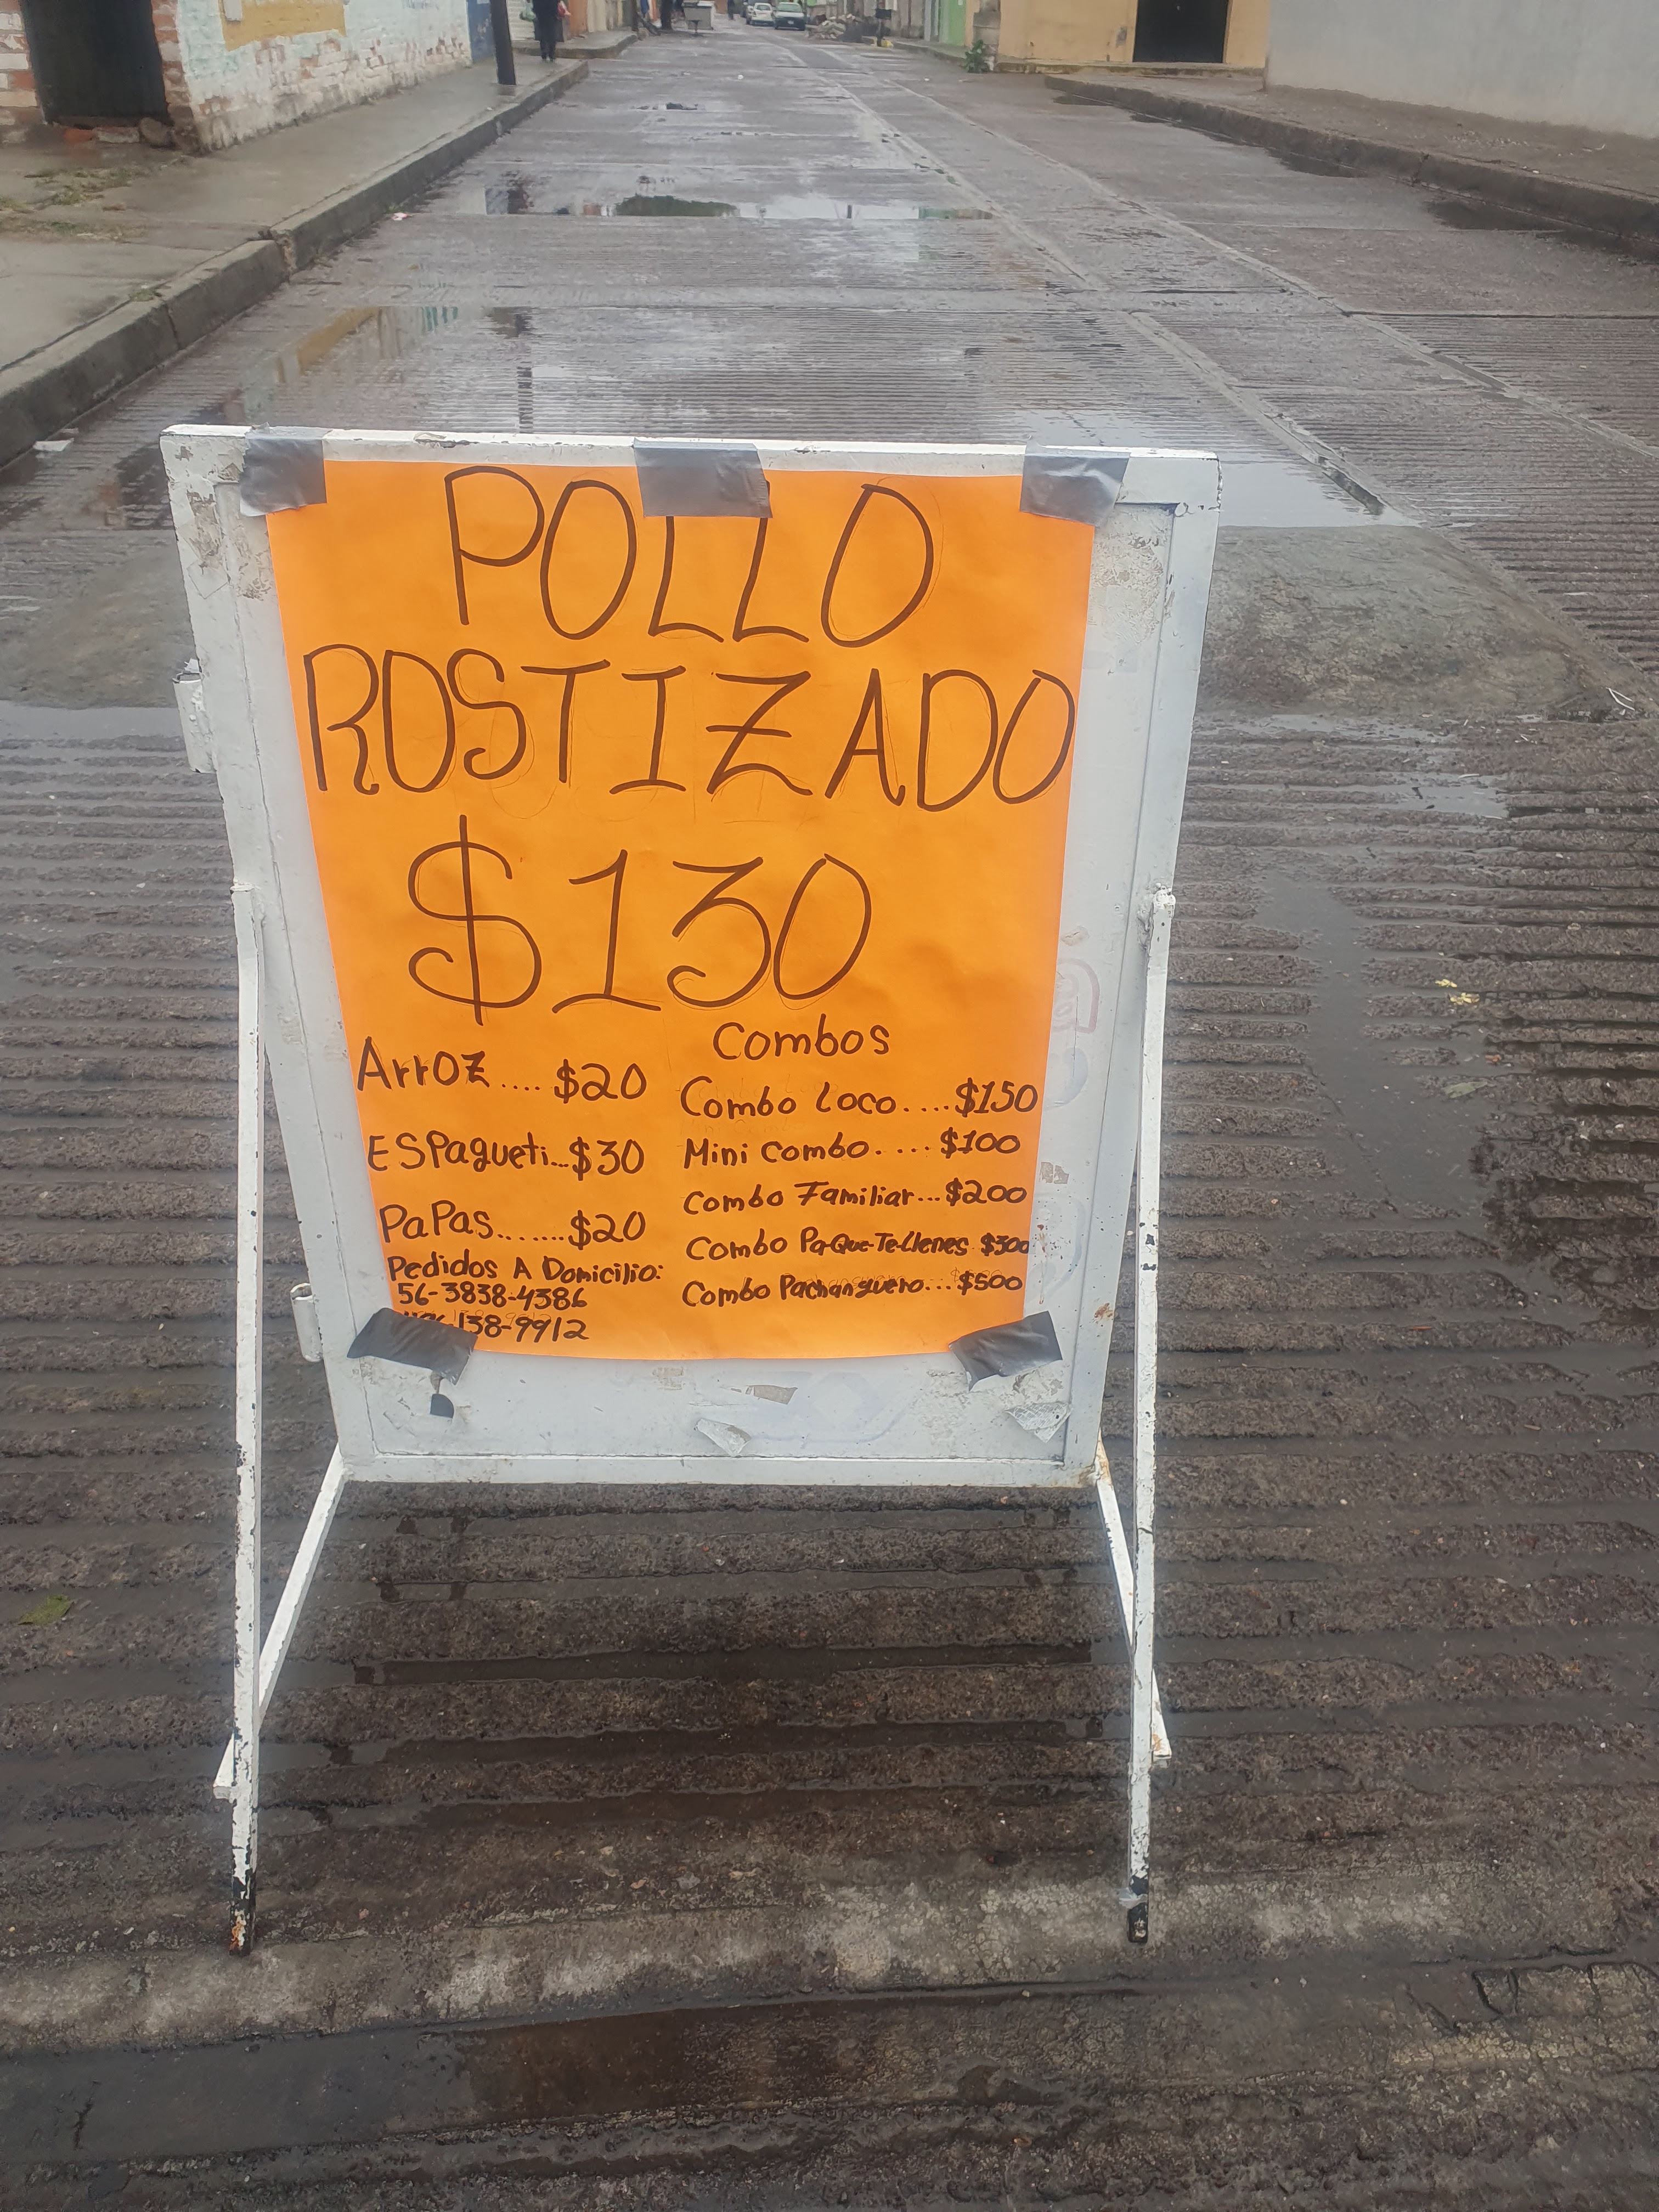 POLLO
ROSTIZADO
$130
Arroz.... $20
ESPagueti...$30
PaPas.......$20
Pedidos A Domicilio:
56-3838-4386
138-9912
Combos
Combo Loco....$150
Mini Combo.....$100
Combo Familiar...$200
Combo Pa-Que-Te-Llenes $300
Combo Pachanguero...$500